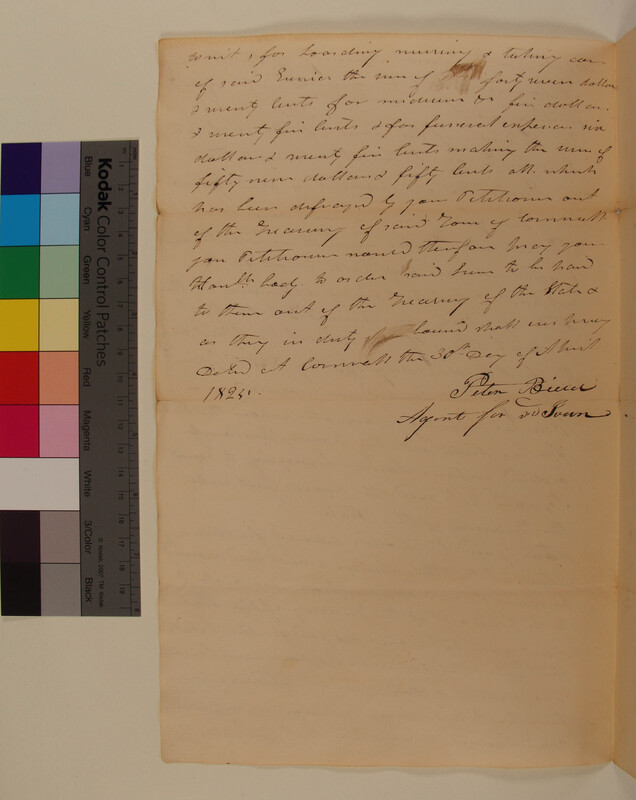 to wit, for boarding nursing & taking care
of said Eunice the sum of forty seven dollars
& twenty cents for medicine &c five dollars
& twenty five cents & for funeral expences six
dollars & twenty five cents making the sum of
fifty nine dollars & fifty cents all which
has been defrayed by your Petitioners out
of the Treasury of said Town of Cornwall
your Petitioners therefore Pray your
Honble body to order said sum to be paid
to them out of the Treasury of the State &
as they in duty bound shall ever pray
Dated At Cornwall the 30th Day of April
182
Peter Bierce
Agent for sd Town
Kodak
Color Control Patches
Blue
Cyan
Green
Yellow
Red
Magenta
White
3/Color
Black
© Kodak, 2007 TM: Kodak